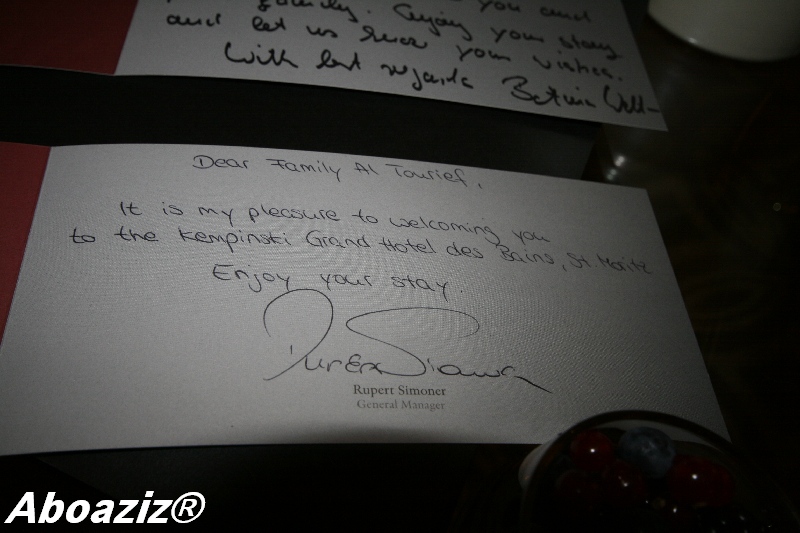 family. Enjoy your stay
and let us know your wishes.
With best regards Bettina
Dear Family Al Tourief,
It is my pleasure to welcoming you
to the Kempinski Grand Hotel des Bains, St. Moritz
Enjoy your stay.
Rupert Simoner
Rupert Simoner
General Manager
Aboaziz®